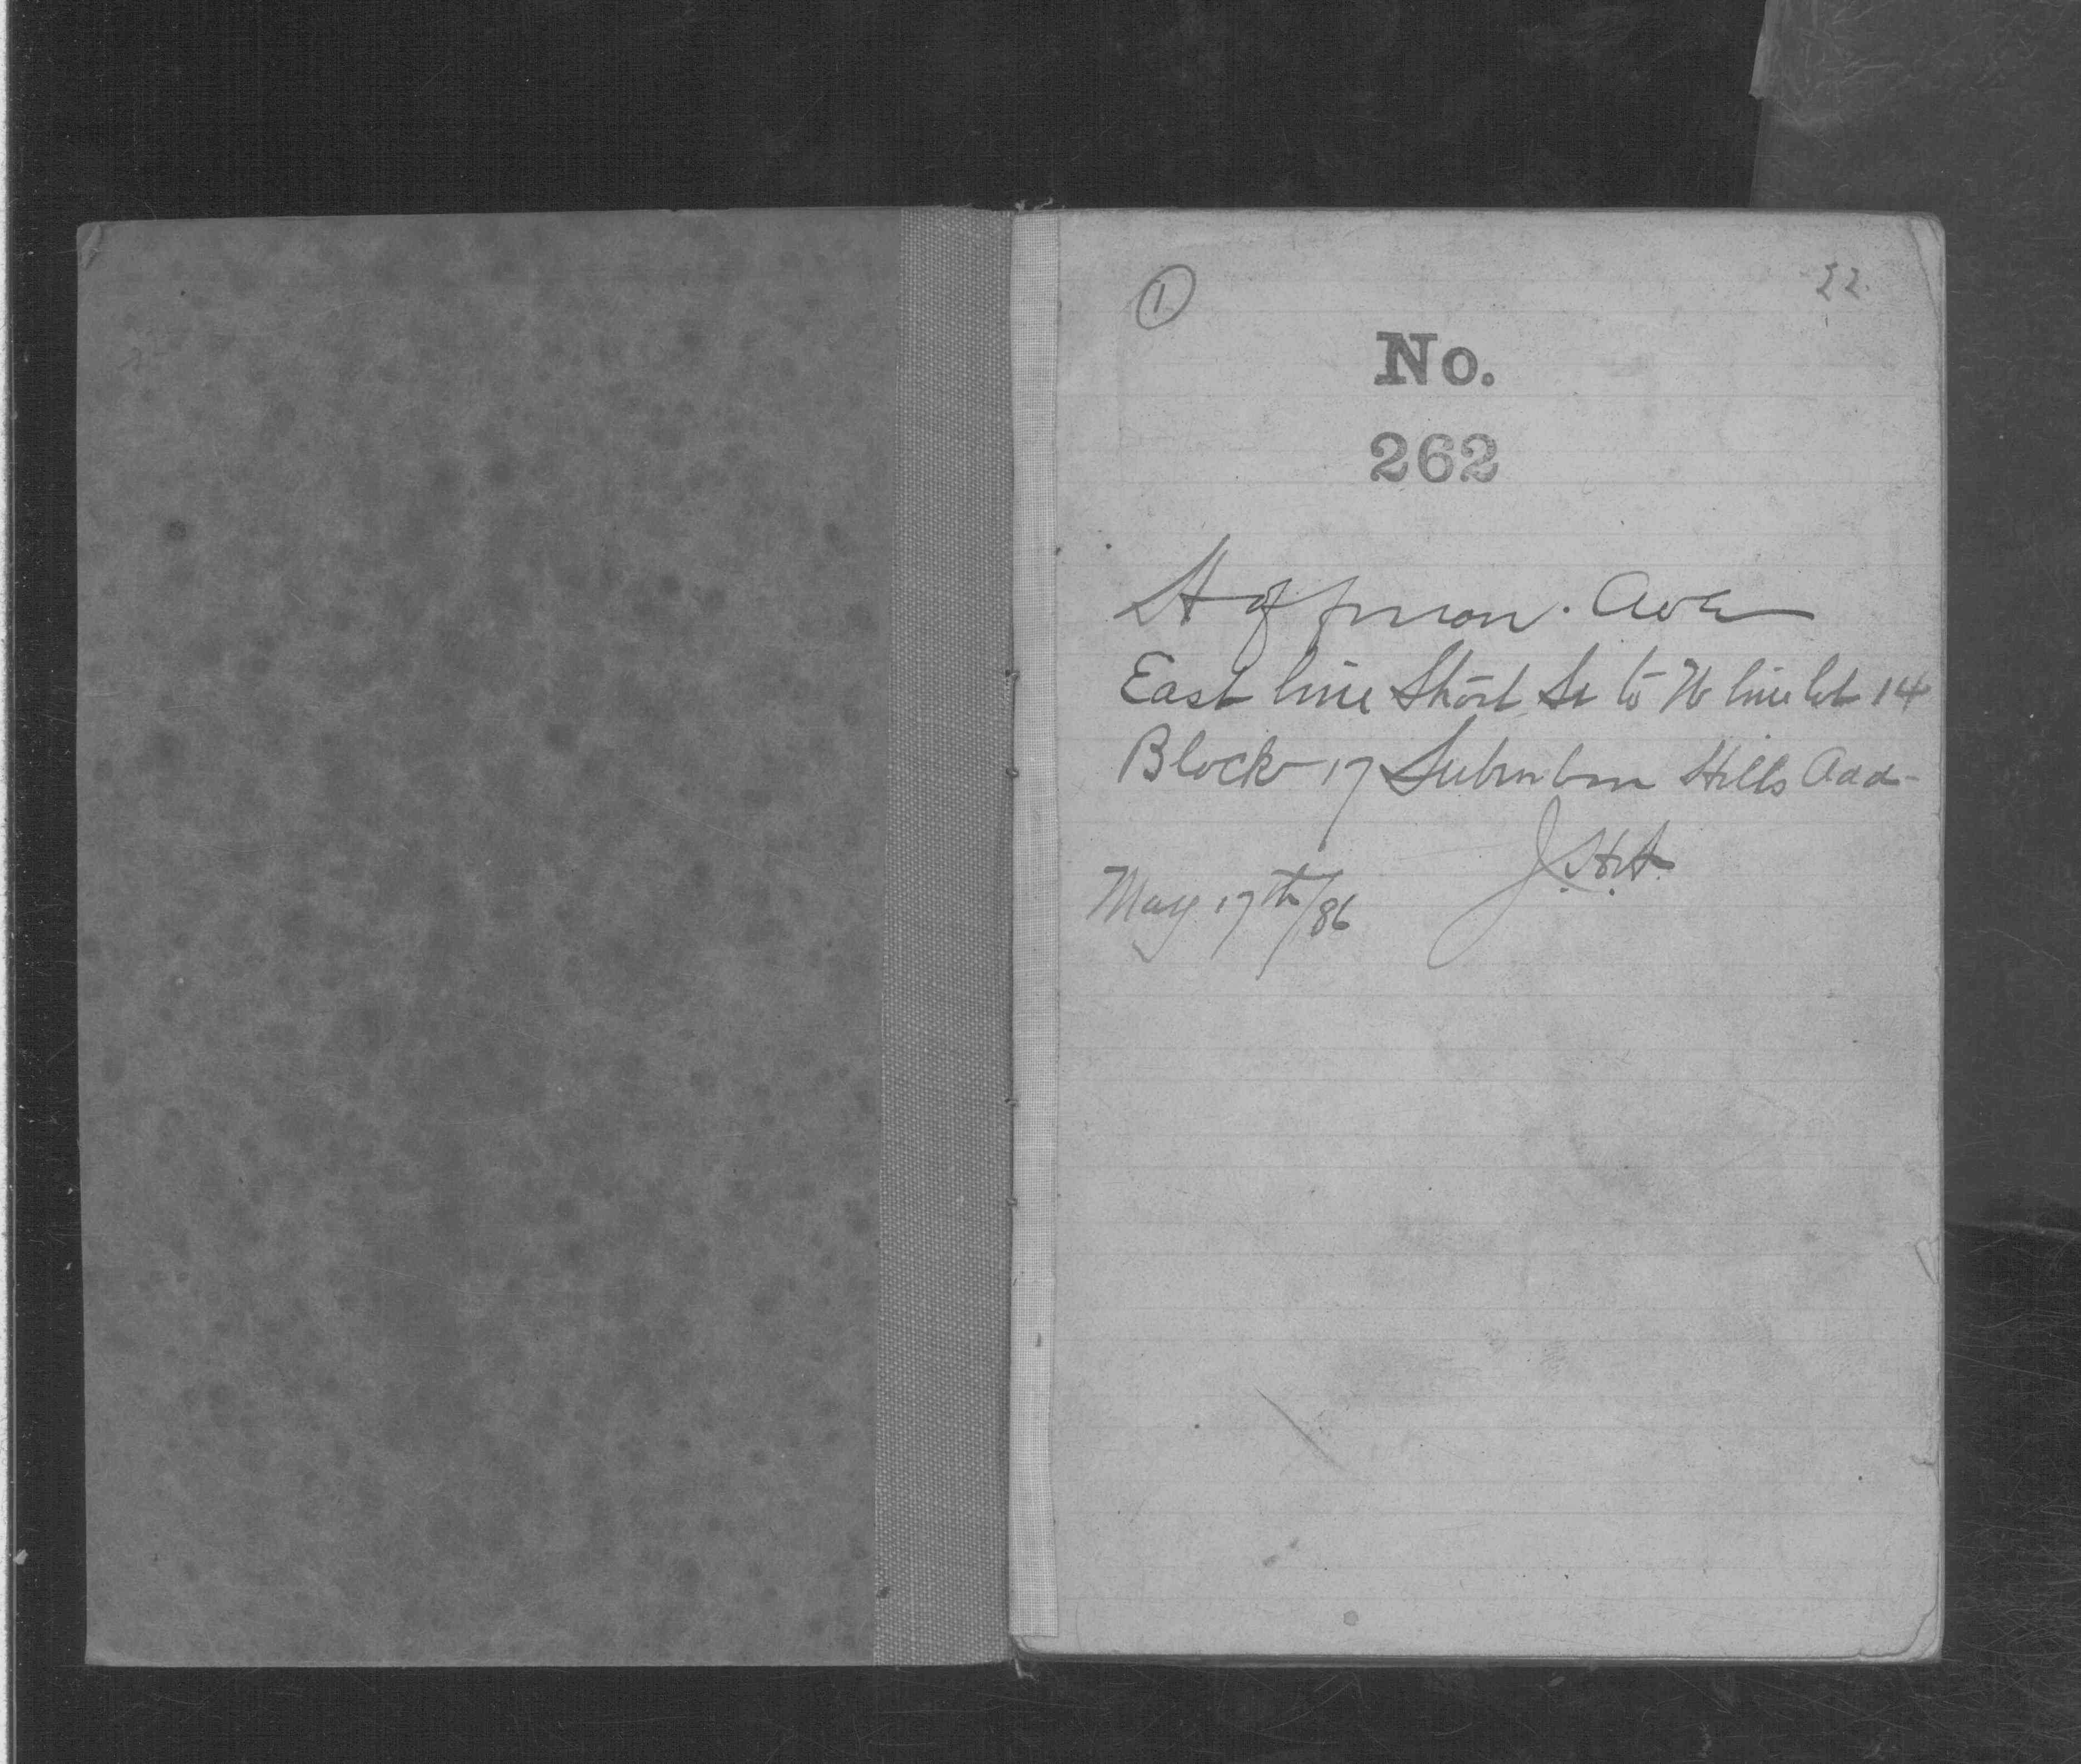 1 22.
No.
262
Hoffman. Ave
East line Short St to W line lot 14
Block 17 Suburban Hills Add-
J.H.A.
May 17th/86